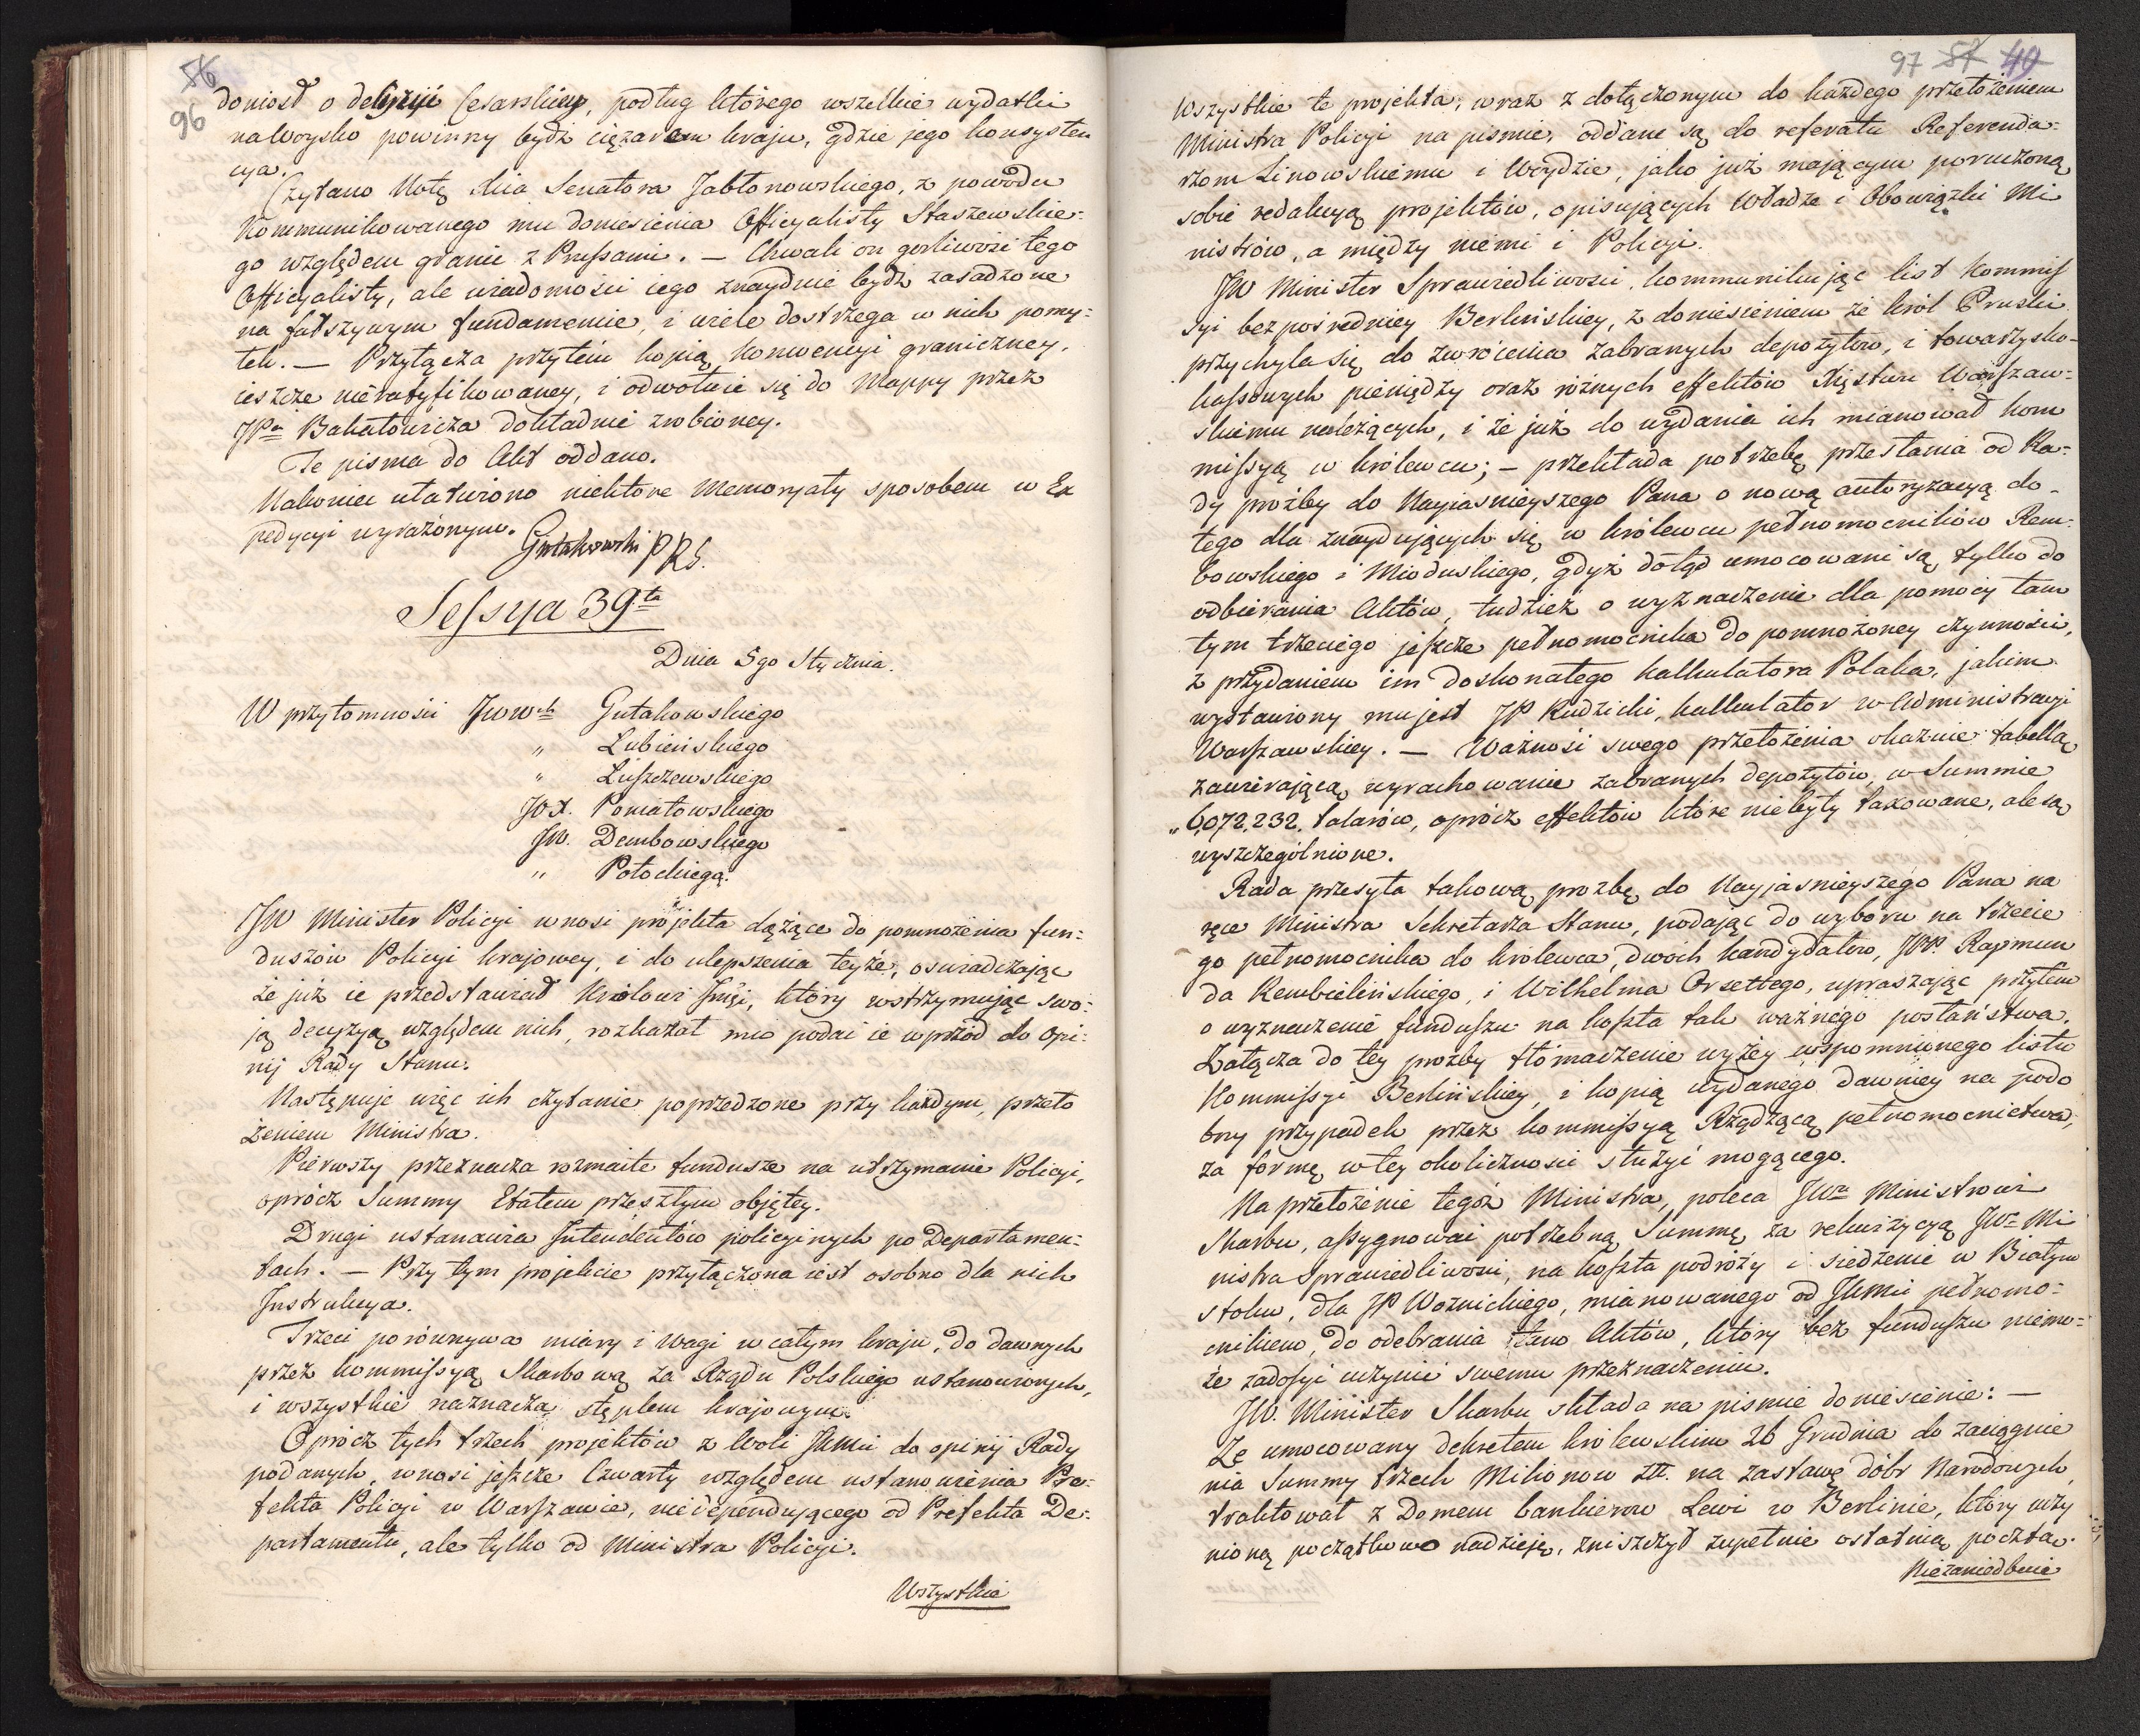 56
96
doniosł o decyzyi Cesarskiey, podług którego wszelkie wydatki
na Woysko powinny bydź ciężarem kraju, gdzie jego konsysten
cya.
Czytano Notę Xcia Senatora Jabłonowskiego, z powodu
Kommunikowanego mu doniesienia Officyalisty Staszewskie-
go względem granic z Prussami. — Chwali on gorliwość tego
Officyalisty, ale wiadomości iego znayduie bydź zasadzone
na fałszywym fundamencie, i wiele dostrzega w nich pomy-
łek. — Przyłącza przytém kopią konwencyi graniczney,
ieszcze nieratyfikowaney, i odwołuie się do Mappy przez
JPa Bakałowicza dokładnie zrobioney.
Te pisma do Akt oddano.
Nakoniec ułatwiono niektóre Memoryały sposobem w Ex
pedycyi wyrażonym. Gutakowski PRS.
Sessya 39ta
Dnia 5go Stycznia.
W przytomności JWWch Gutakowskiego
" Łubieńskiego
" Łuszczewskiego
JOX. Poniatowskiego
JW. Dembowskiego
" Potockiego.
JW Minister Policyi wnosi projekta dążące do pomnożenia fun-
duszów Policyi krajowey, i do ulepszenia teyże, oswiadczając
że już ie przedstawiał Królowi Jmci, który wstrzymując swo-
ją decyzyą względem nich, rozkazał mu podać ie wprzód do Opi-
nij Rady Stanu.
Następuje więc ich czytanie poprzedzone przy każdym, przeło
żeniem Ministra.
Pierwszy przeznacza rozmaite fundusze na utrzymanie Policyi,
oprócz Summy Etatem przeszłym objętey.
Drugi ustanawia Intendentów policyinych po Departamen-
tach. — Przy tym projekcie przyłączona iest osobno dla nich
Instrukcya.
Trzeci porównywa miary i wagi w całym kraju, do dawnych
przez kommissyą Skarbową za Rządu Polskiego ustanowionych,
i wszystkie naznacza stęplem krajowym.
Oprócz tych trzech projektów z Woli JKMci do opinij Rady
podanych, wnosi jeszcze Czwarty względem ustanowienia Pre-
fekta Policyi w Warszawie, niedependującego od Prefekta De-
partamentu, ale tylko od Ministra Policyi.
Wszystkie
97 57 40
Wszystkie te projekta, wraz z dołączonym do każdego przełożeniem
Ministra Policyi na pismie, oddane są do referatu Referenda-
rzom Linowskiemu i Woydzie, jako już mającym poruczoną
sobie redakcyą projektów, opisujących Władze i Obowiązki Mi
nistrów, a między niemi i Policyi.
JW Minister Sprawiedliwości, kommunikując list Kommis
syi bezpośredniey Berlińskiey, z doniesieniem że król Pruski
przychyla się do zwrócenia zabranych depozytów, i towarzysko-
kassowych pieniędzy oraz różnych effektów Xięstwu Warszaw-
skiemu należących, i że już do wydania ich mianował kom
missyą w królewcu; — przekłada potrzebę przesłania od Ra-
dy prośby do Nayiasnieyszego Pana o nową autoryzacyą do
tego dla znaydujących się w królewcu pełnomocników Rem-
bowskiego i Mioduskiego, gdyż dotąd umocowani są tylko do
odbierania Aktów, tudzież o wyznaczenie dla pomocy tam
tym trzeciego jeszcze pełnomocnika do pomnożoney czynności,
z przydaniem im doskonałego kalkulatora Polaka, jakim
wystawiony mu jest JP Rudzicki, kalkulator w Administracyi
Warszawskiey. — Ważność swego przełożenia okazuie tabellą
zawierającą wyrachowanie zabranych depozytów, w Summie
„6,072,232. talarów, oprócz effektów które niebyły taxowane, ale są
wyszczególnione.
Rada przesyła takową prozbę do Nayjasnieyszego Pana na
ręce Ministra Sekretarza Stanu, podając do wyboru na trzecie
go pełnomocnika do królewca, dwóch kandydatów, JPP. Raymun
da Rembielińskiego, i Wilhelma Orsettego, upraszając przytém
o wyznaczenie funduszu na koszta tak ważnego posłaństwa.
Załącza do tey prozby tłómaczenie wyżey wspomnionego listu
Kommissyi Berlińskiey, i kopią wydanego dawniey na podo
bny przypadek przez kommissyą Rządzącą pełnomocnictwa,
za formę w tey okoliczności służyć mogącego.
Na przełożenie tegoż Ministra, poleca JWu Ministrowi
Skarbu, assygnować potrzebną Summę, za rekwizycyą JWo Mi
nistra Sprawiedliwości, na koszta podróży i siedzenie w Białym
stoku, dla JP Woznickiego, mianowanego od JKMci pełnomo-
cnikiem, do odebrania tam Aktów, który bez funduszu niemo-
że zadosyć uczynić swemu przeznaczeniu.
JW. Minister Skarbu składa na pismie doniesienie: —
Że umocowany dekretem królewskim 26 Grudnia do zaciągnie
nia Summy trzech Milionow Zł. na zastawę dóbr Narodowych
traktował z Domem bankierów Lewi w Berlinie, który uczy
nioną początkowo nadzieję, zniszczył zupełnie ostatnią pocztą.
Niezaniedbuie